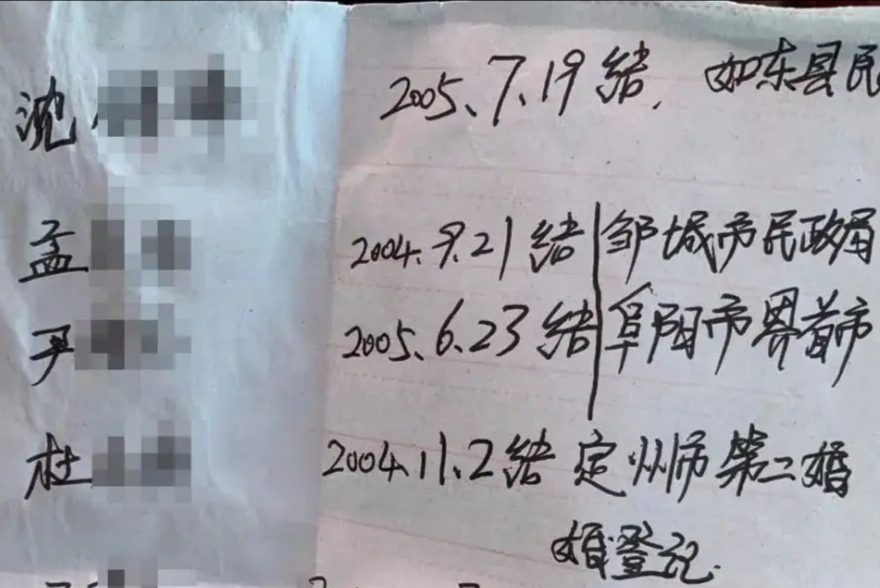 沈 2005.7.19结, 如东县民
孟 2004.9.21结 邹城市民政局
尹 2005.6.23结 阜阳市界首市
杜 2004.11.2结 定州市第二婚
婚登记.